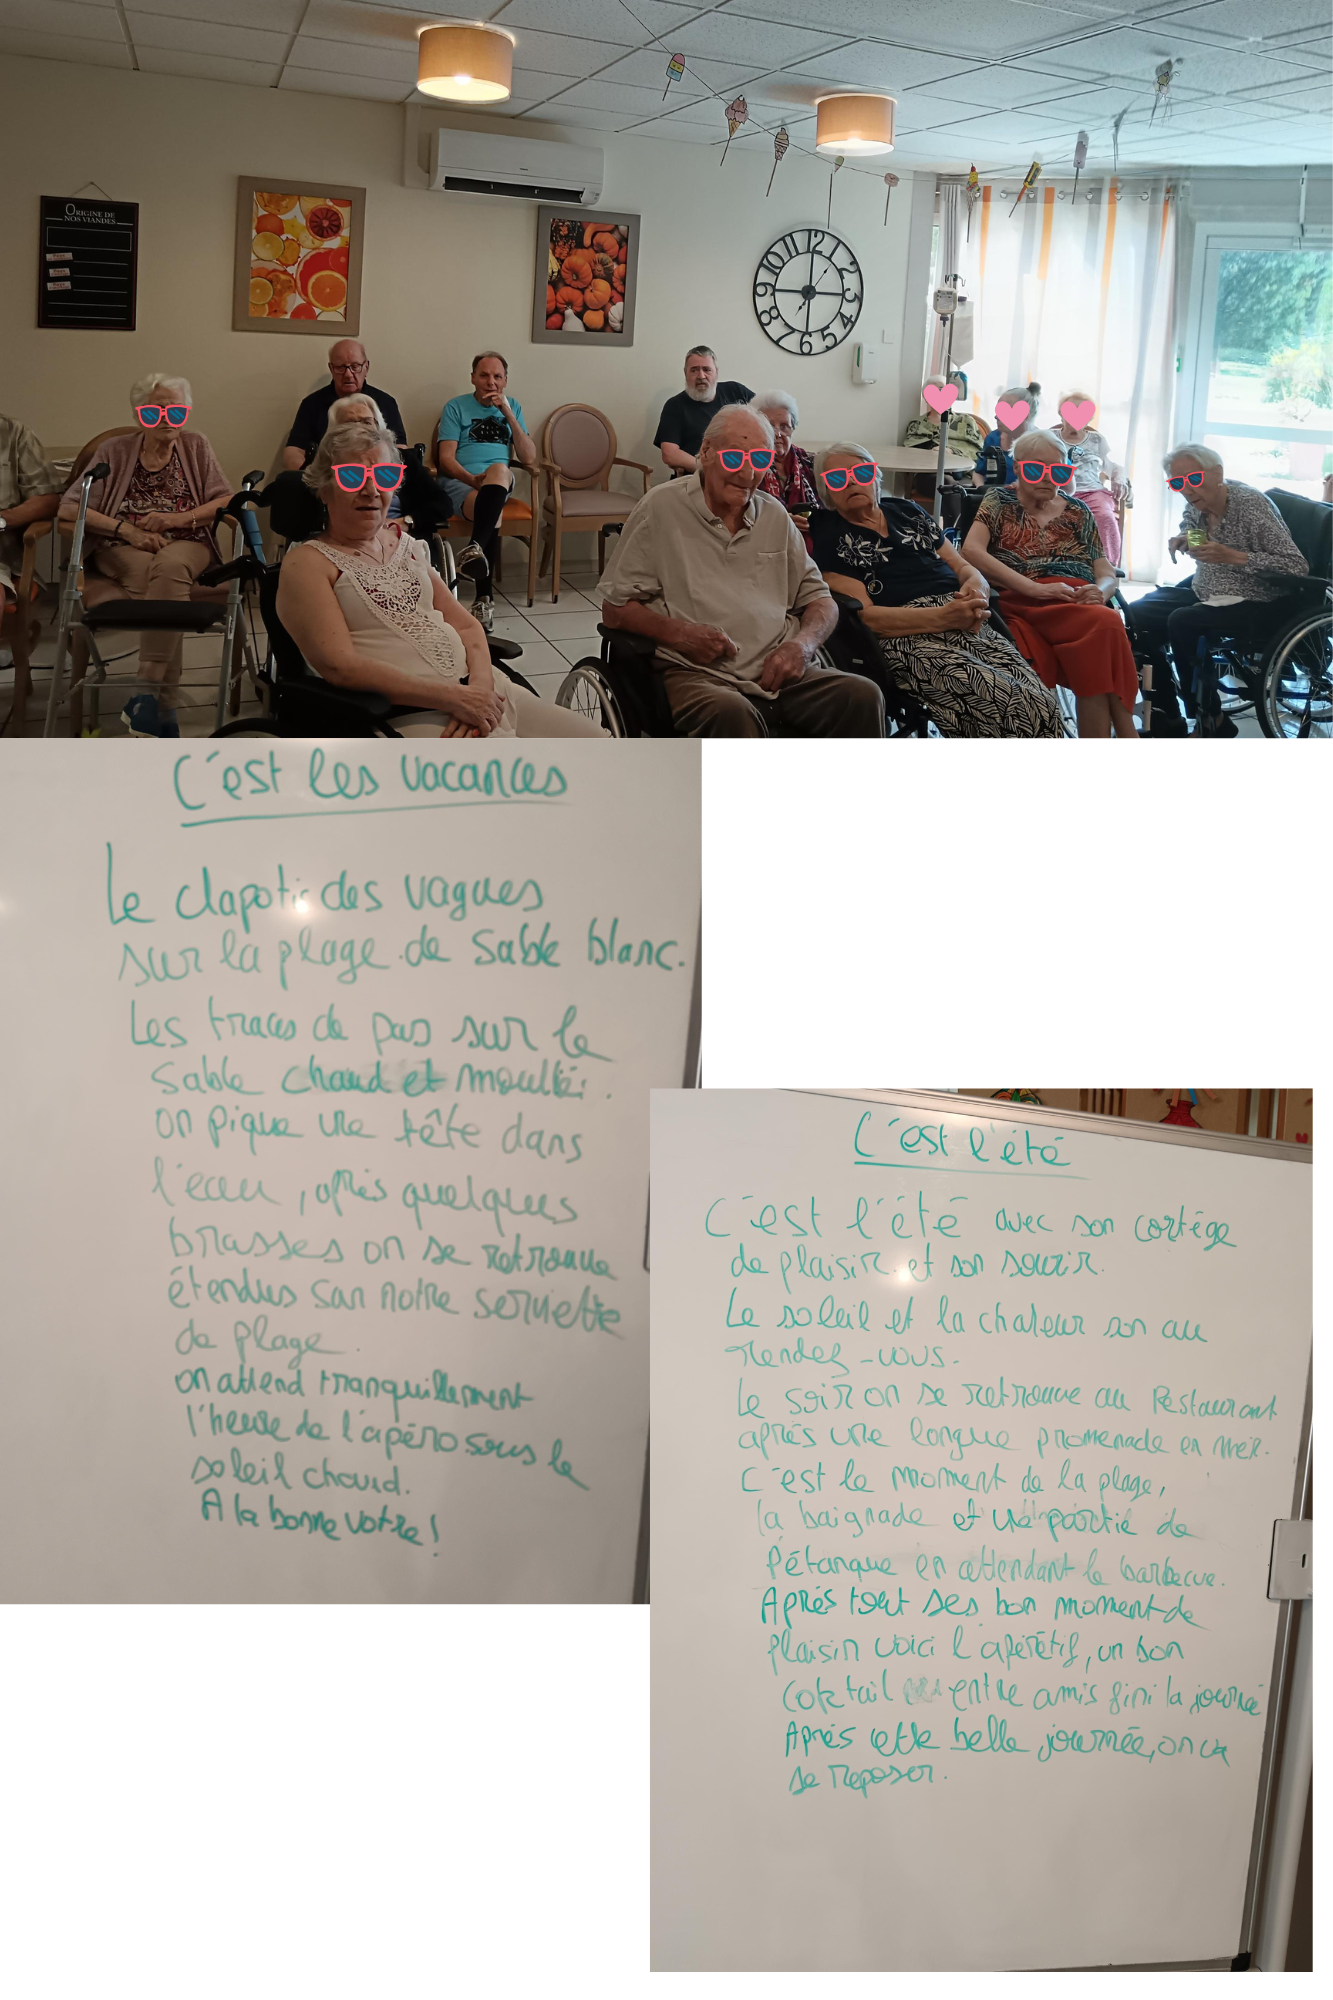 ORIGINE DE
NOS VIANDES
10 11 12 1 2 3 4 5 6 7 8 9
C'est les vacances
Le clapotis des vagues
sur la plage de sable blanc.
Les traces de pas sur le
sable chaud et mouillé.
on pique une tête dans
l'eau, après quelques
brasses on se retrouve
étendus sur notre serviette
de plage.
on attend tranquillement
l'heure de l'apéro sous le
soleil chaud.
A la bonne votre !
C'est l'été
C'est l'été avec son cortège
de plaisir et son sourir.
Le soleil et la chaleur son au
rendez-vous.
Le soir on se retrouve au Restaurant
après une longue promenade en mer.
C'est le moment de la plage,
la baignade et une partie de
Pétanque en attendant le barbecue.
Après tout ses bon moment de
plaisir voici l'apéretif, un bon
Coktail entre amis fini la journé
Après cette belle journée, on va
se reposer.